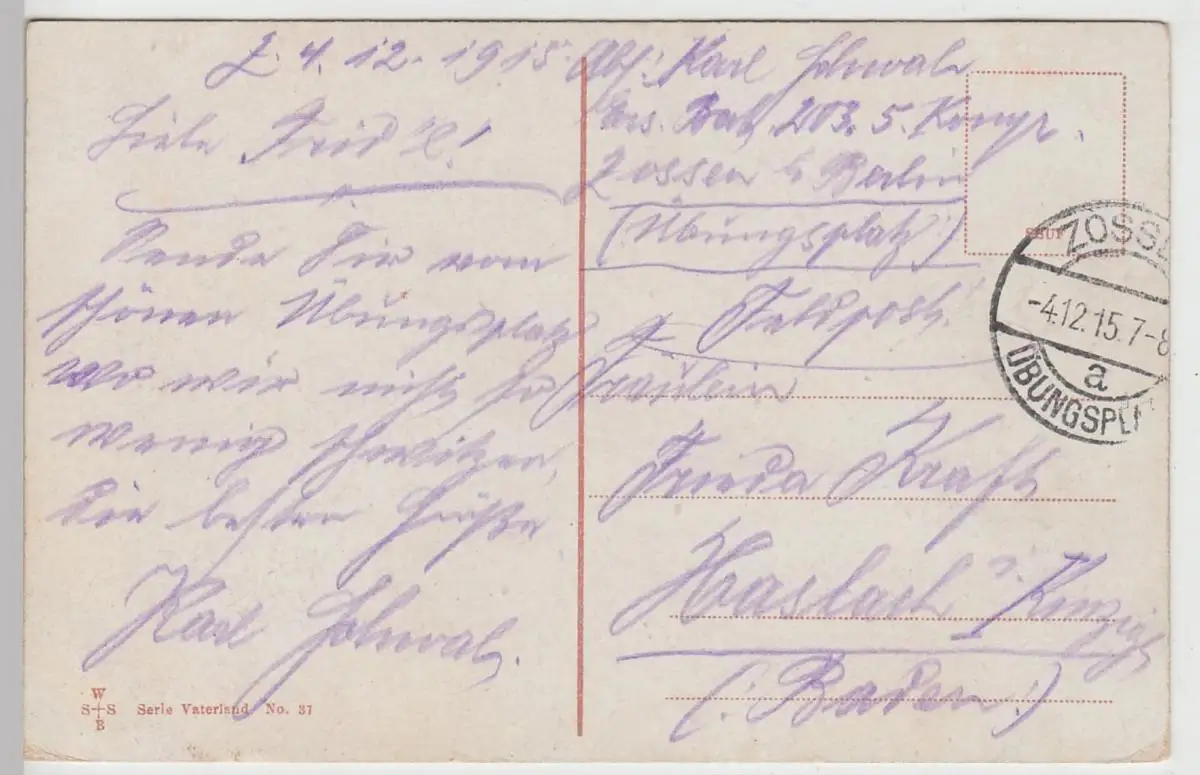 Z. 4. 12. 1915.
Liebe Frieda!
Sende Dir vom
schönen Übungsplatz
wo wir nicht so
wenig schwitzen,
die besten Grüße
Karl Schwab.
W
S+S
B
Serie Vaterland No. 37
Abs: Karl Schwab
Ers. Bat. 203. 5. Komp.
Zossen b Berlin
(Übungsplatz)
Feldpost.
Fräulein
Frieda Kraft
Haslach i. Kinzigt
(:Baden:)
ZOSSE
-4.12.15.7-8
a
ÜBUNGSPL